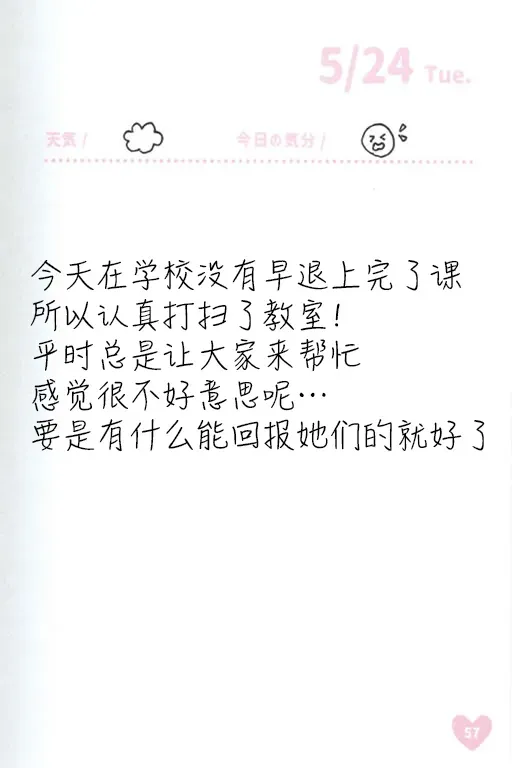 5/24 Tue.
天気/ 今日の気分/
今天在学校没有早退上完了课
所以认真打扫了教室！
平时总是让大家来帮忙
感觉很不好意思呢…
要是有什么能回报她们的就好了
57